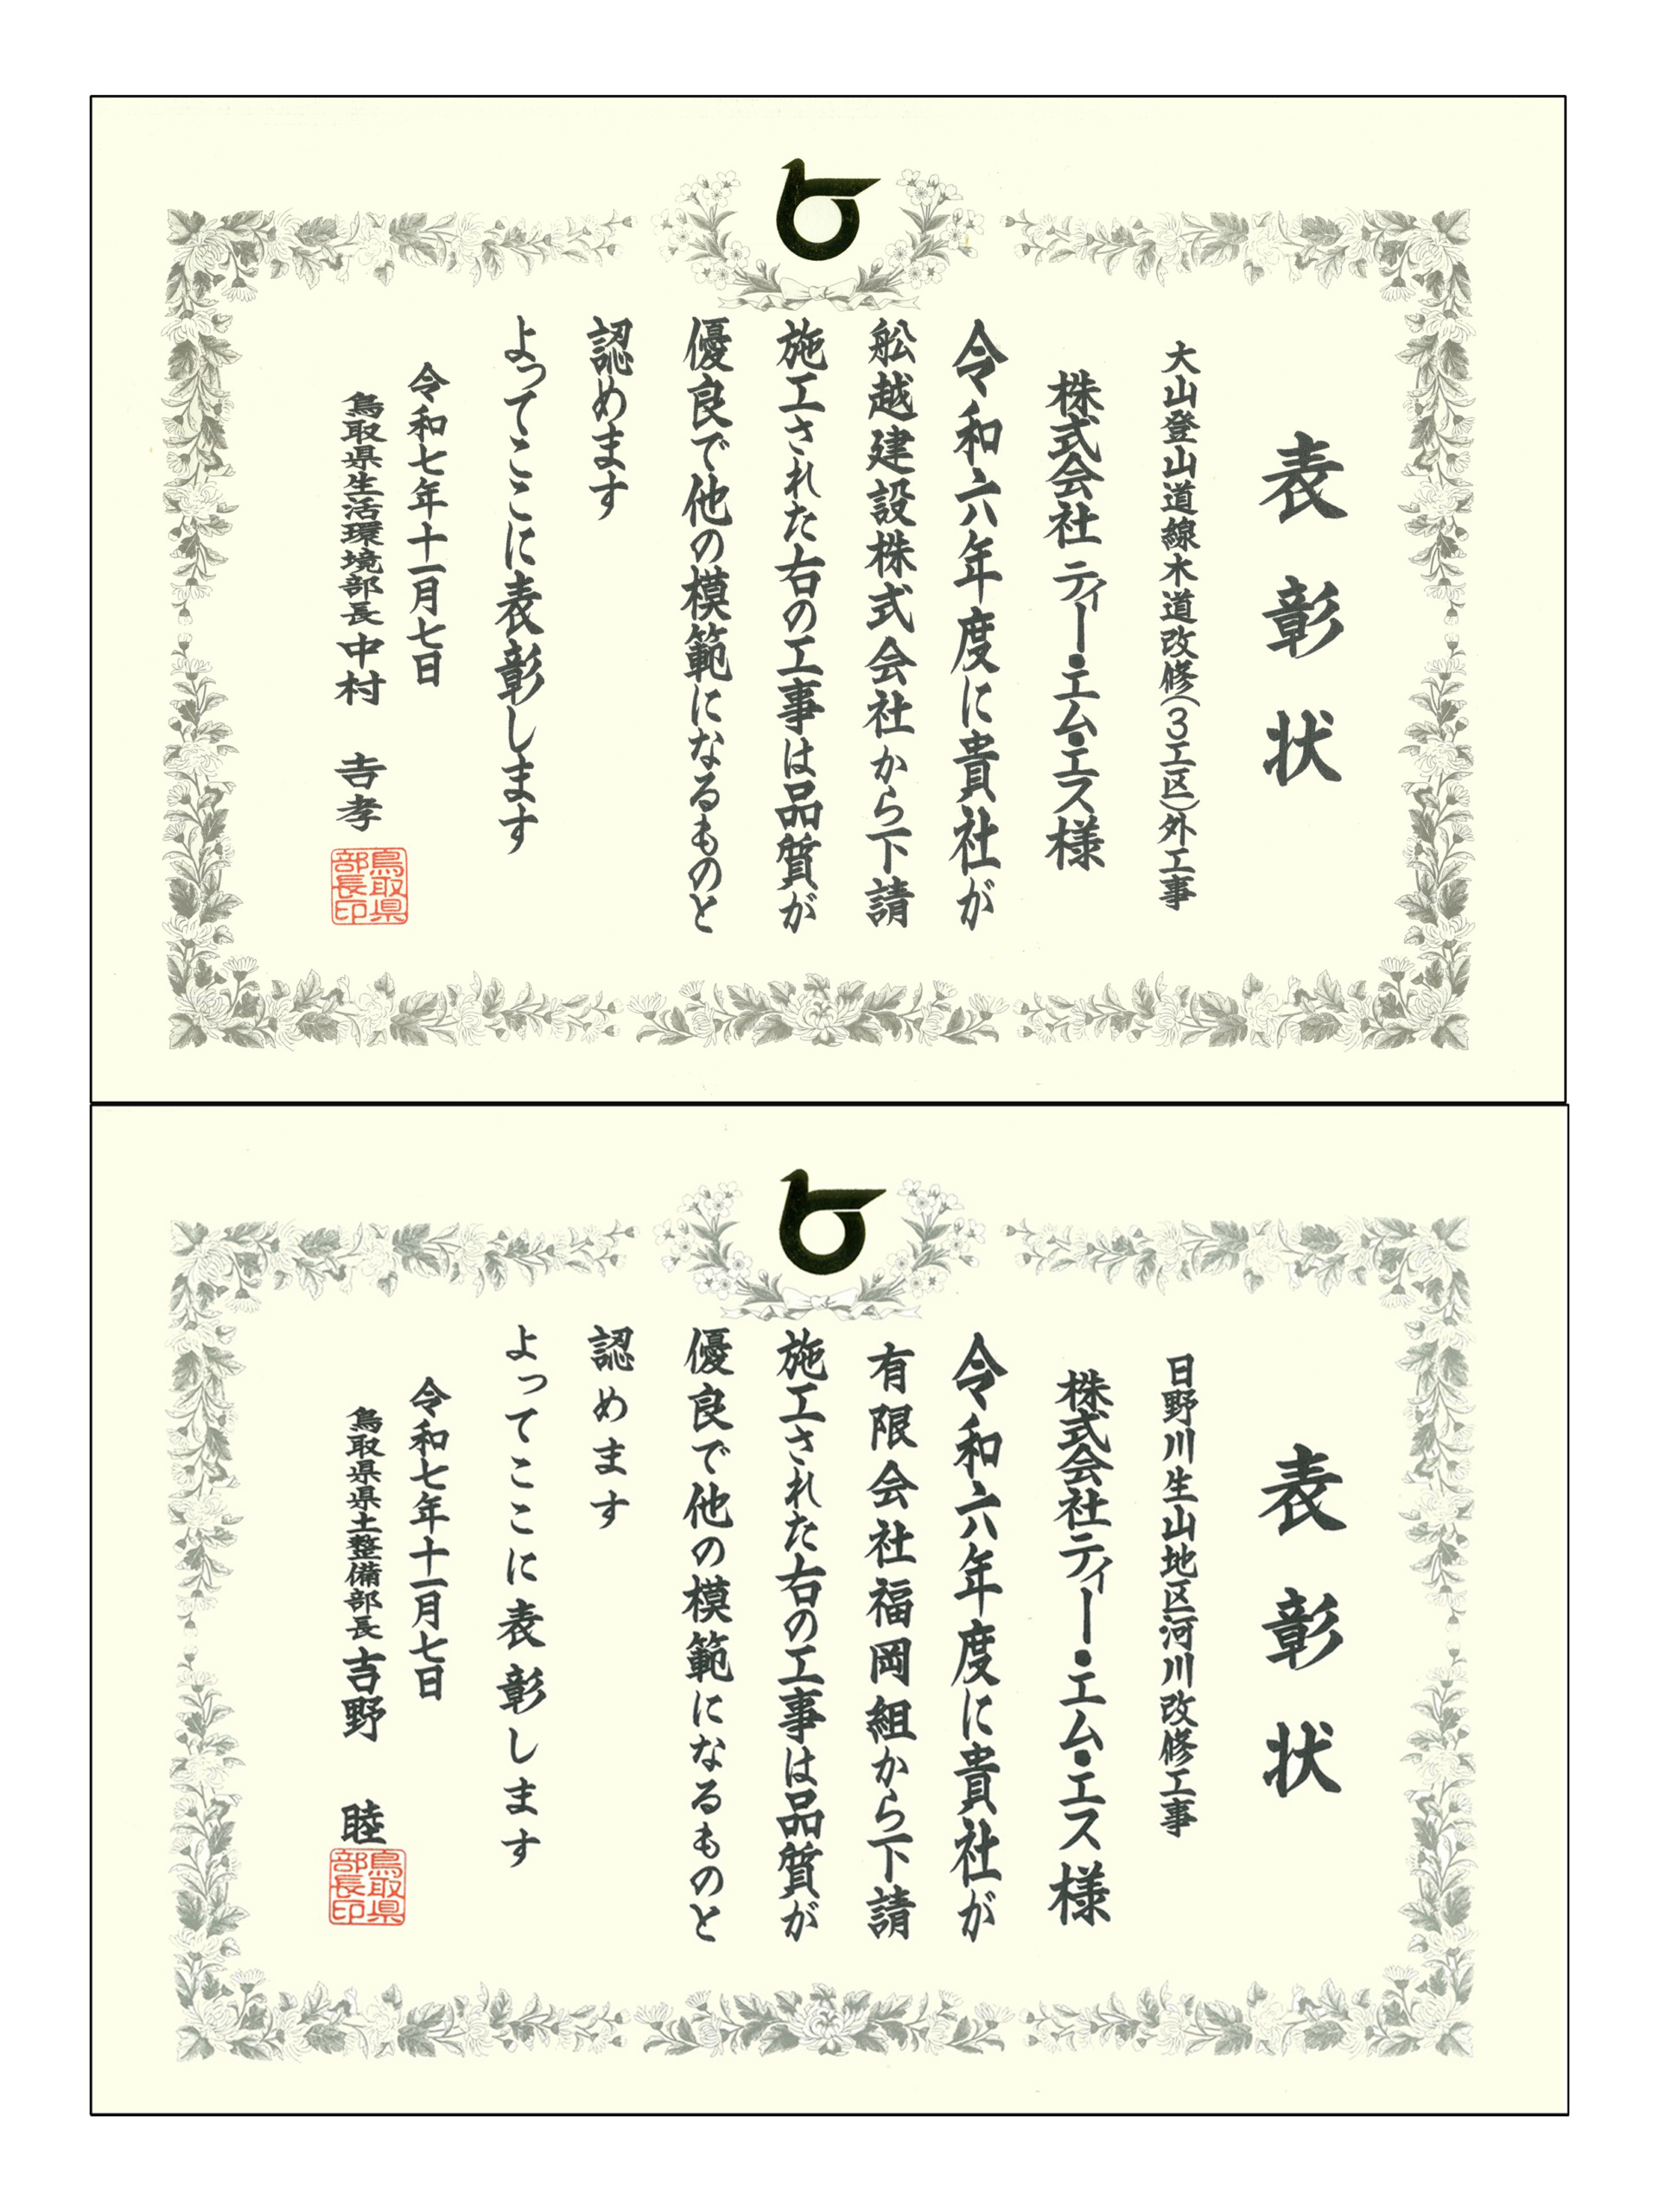 表彰状
大山登山道線木道改修(3工区)外工事
株式会社ティー・エム・エス様
令和六年度に貴社が
舩越建設株式会社から下請
施工された右の工事は品質が
優良で他の模範になるものと
認めます
よってここに表彰します
令和七年十一月七日
鳥取県生活環境部長中村 吉孝
鳥取県
部長印
表彰状
日野川生山地区河川改修工事
株式会社ティー・エム・エス様
令和六年度に貴社が
有限会社福岡組から下請
施工された右の工事は品質が
優良で他の模範になるものと
認めます
よってここに表彰します
令和七年十一月七日
鳥取県県土整備部長吉野 睦
鳥取県
部長印